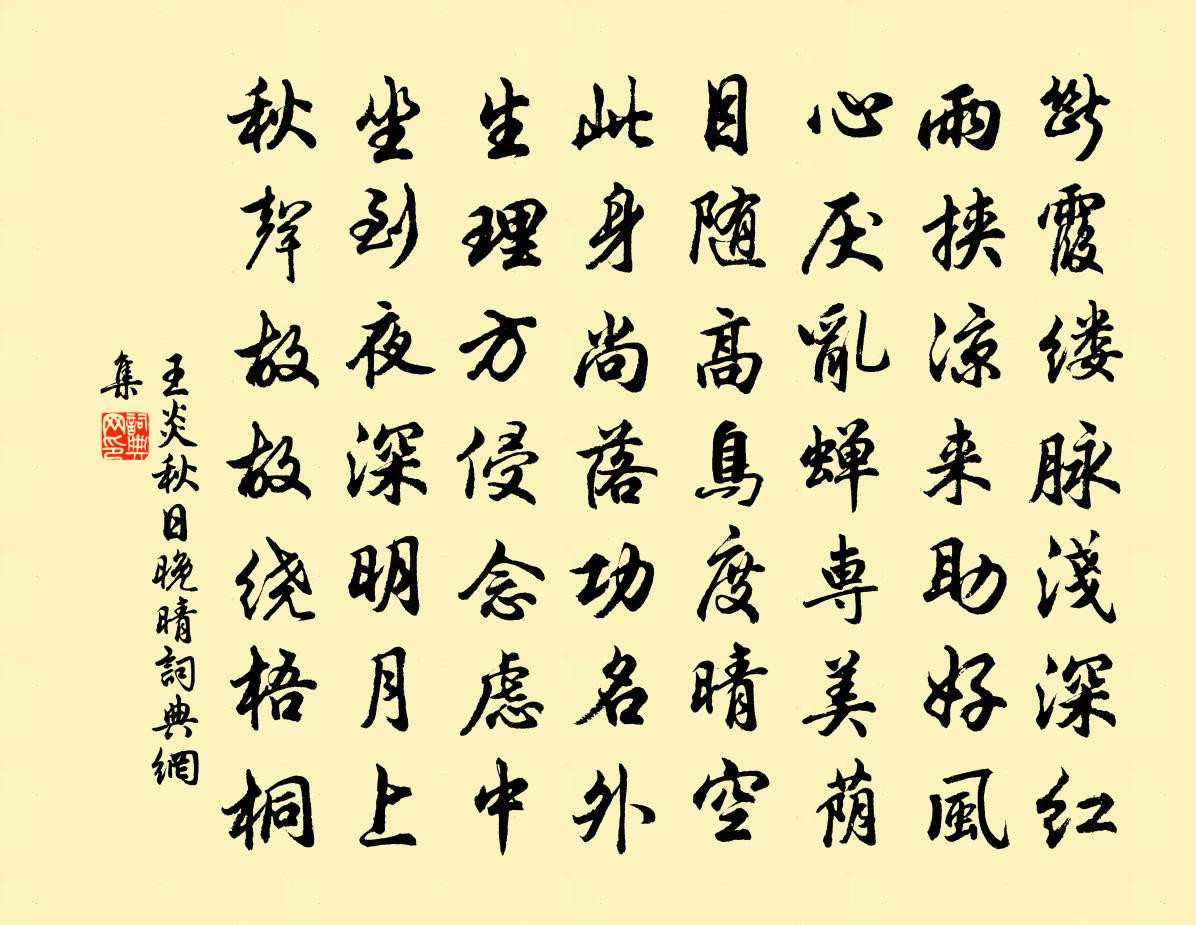 断霞缕脉淺深红
雨挟凉来助好風
心厌亂蝉専美荫
目随高鳥度晴空
此身尚落功名外
生理方侵念虑中
坐到夜深明月上
秋聲故故绕梧桐
王炎秋日晚晴詞典網
集
詞典
网印